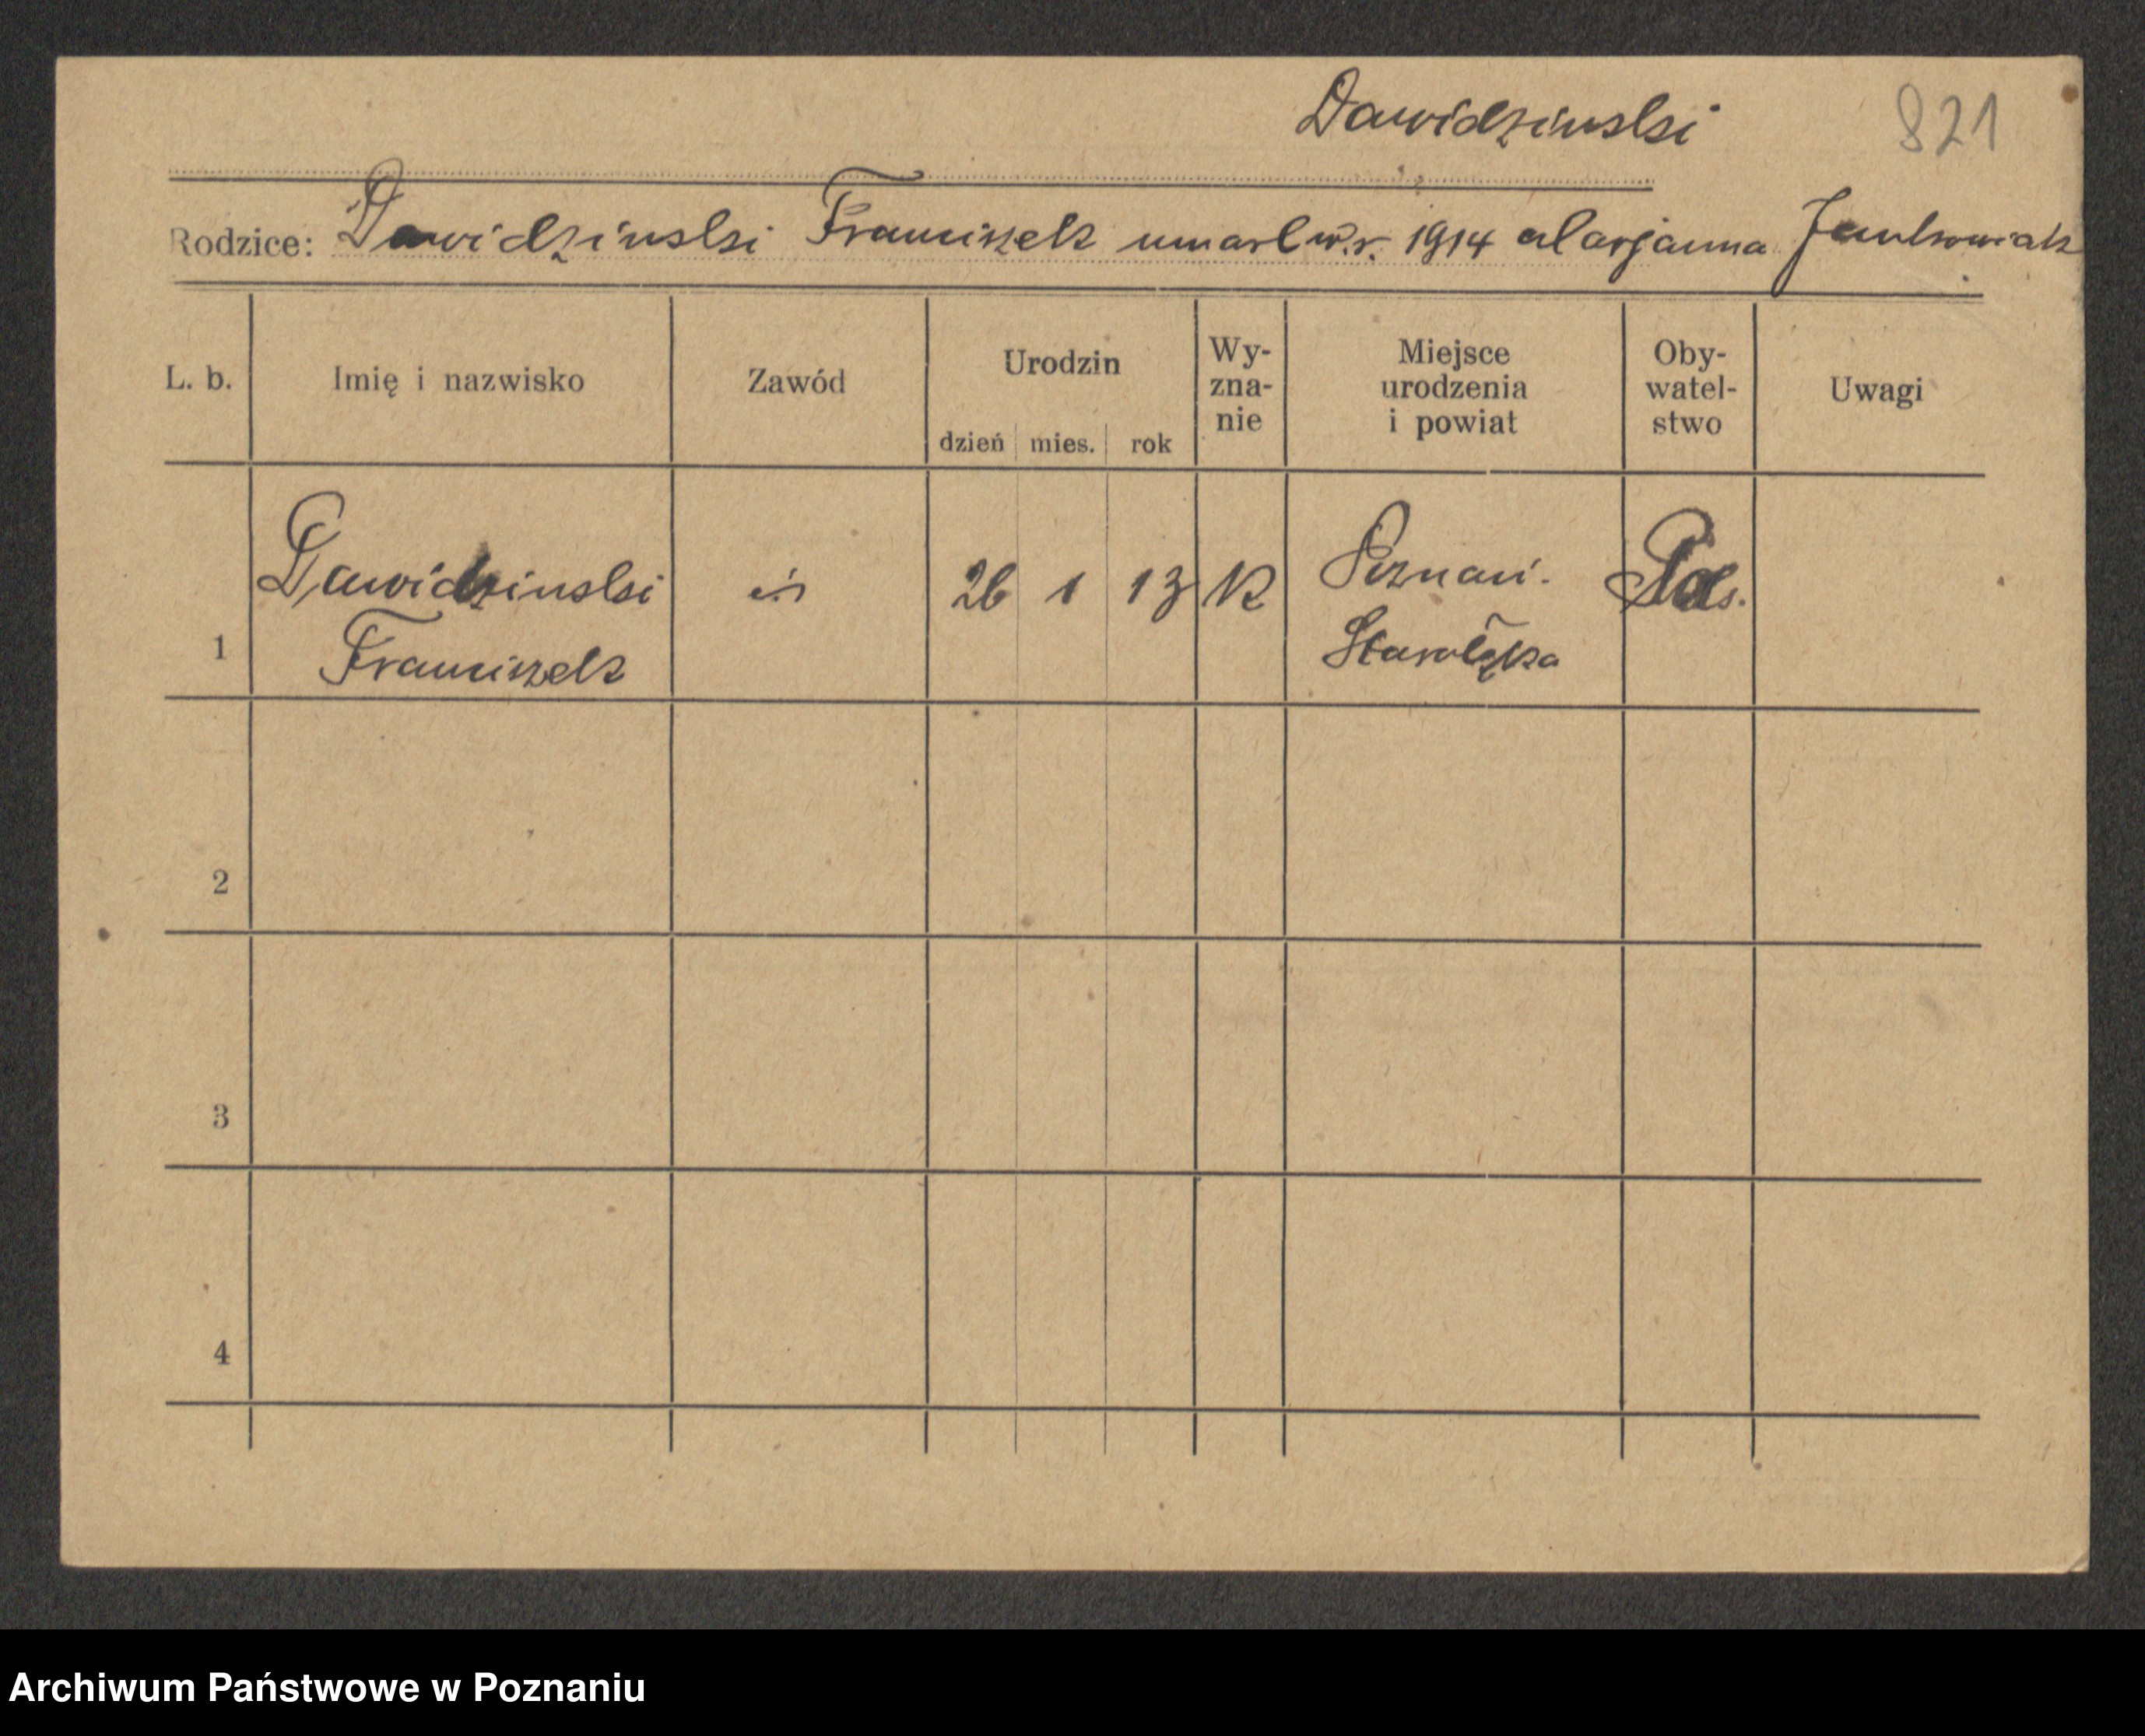 Dawidzinski 821
Rodzice: Dawidzinski Franciszek umarl w.r. 1914 Marjanna Jankowiak
L. b. Imię i nazwisko Zawód Urodzin dzień mies. rok Wy-zna-nie Miejsce urodzenia i powiat Oby-watel-stwo Uwagi
Dawidzinski 26 1 13 K Poznań.
1 Franciszek Starołęka
2
3
4
Archiwum Państwowe w Poznaniu